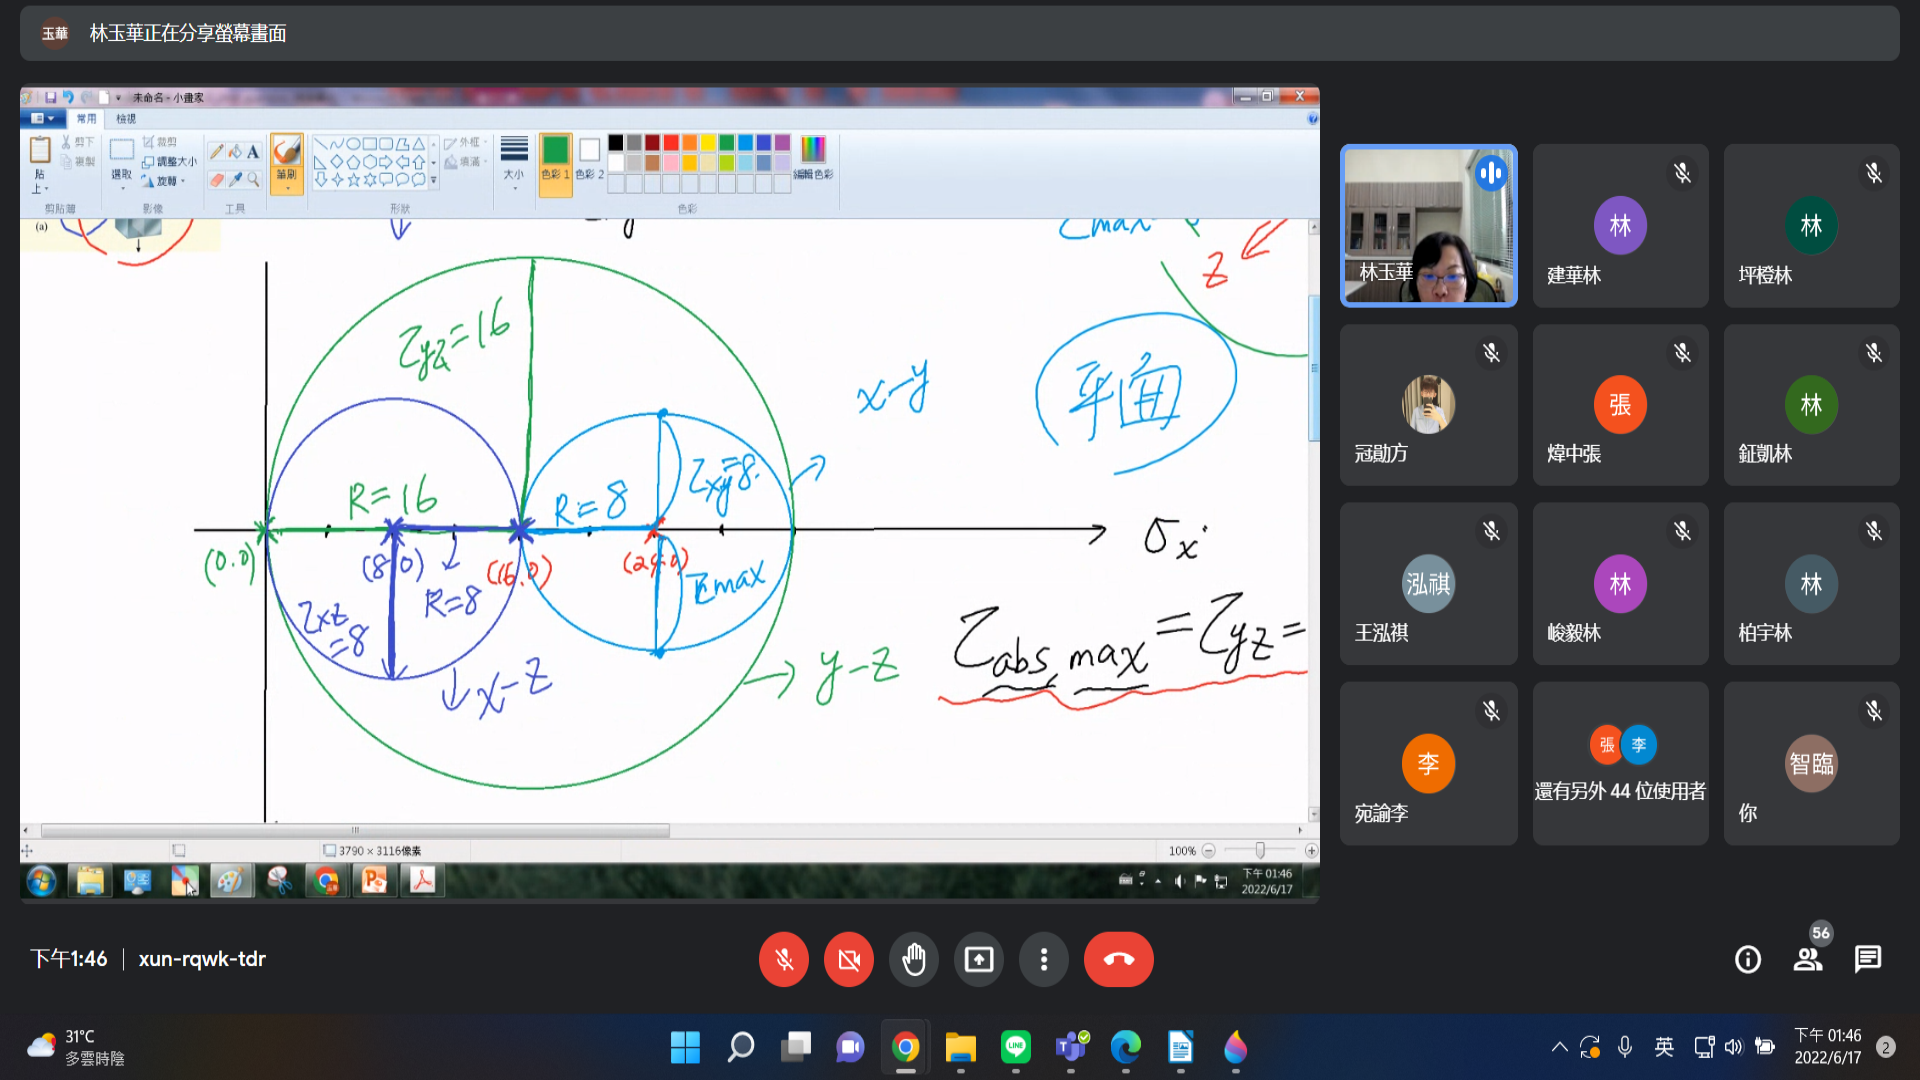 玉華 林玉華正在分享螢幕畫面
未命名 - 小畫家
常用 檢視
貼上 剪下 複製 剪貼簿
選取 裁剪 調整大小 旋轉 影像
A 工具
筆刷
外框 填滿 圖案
大小
色彩 1 色彩 2 編輯色彩 色彩
(a)
τmax
z
τyz=16
x-y
平面
R=16
R=8
τxy=8
(0.0)
(8.0)
(16.0)
(24.0)
σx
τxz=8
R=8
τmax
x-z
y-z
τabs, max = τyz =
3790 × 3116像素
100%
下午 01:46
2022/6/17
林玉華
林 建華林
林 坪橙林
冠勛方
張 煒中張
林 鉦凱林
泓祺 王泓祺
林 峻毅林
林 柏宇林
李 宛諭李
張 李 還有另外 44 位使用者
智臨 你
下午1:46 | xun-rqwk-tdr
56
31°C
多雲時陰
LINE
英
下午 01:46
2022/6/17
2